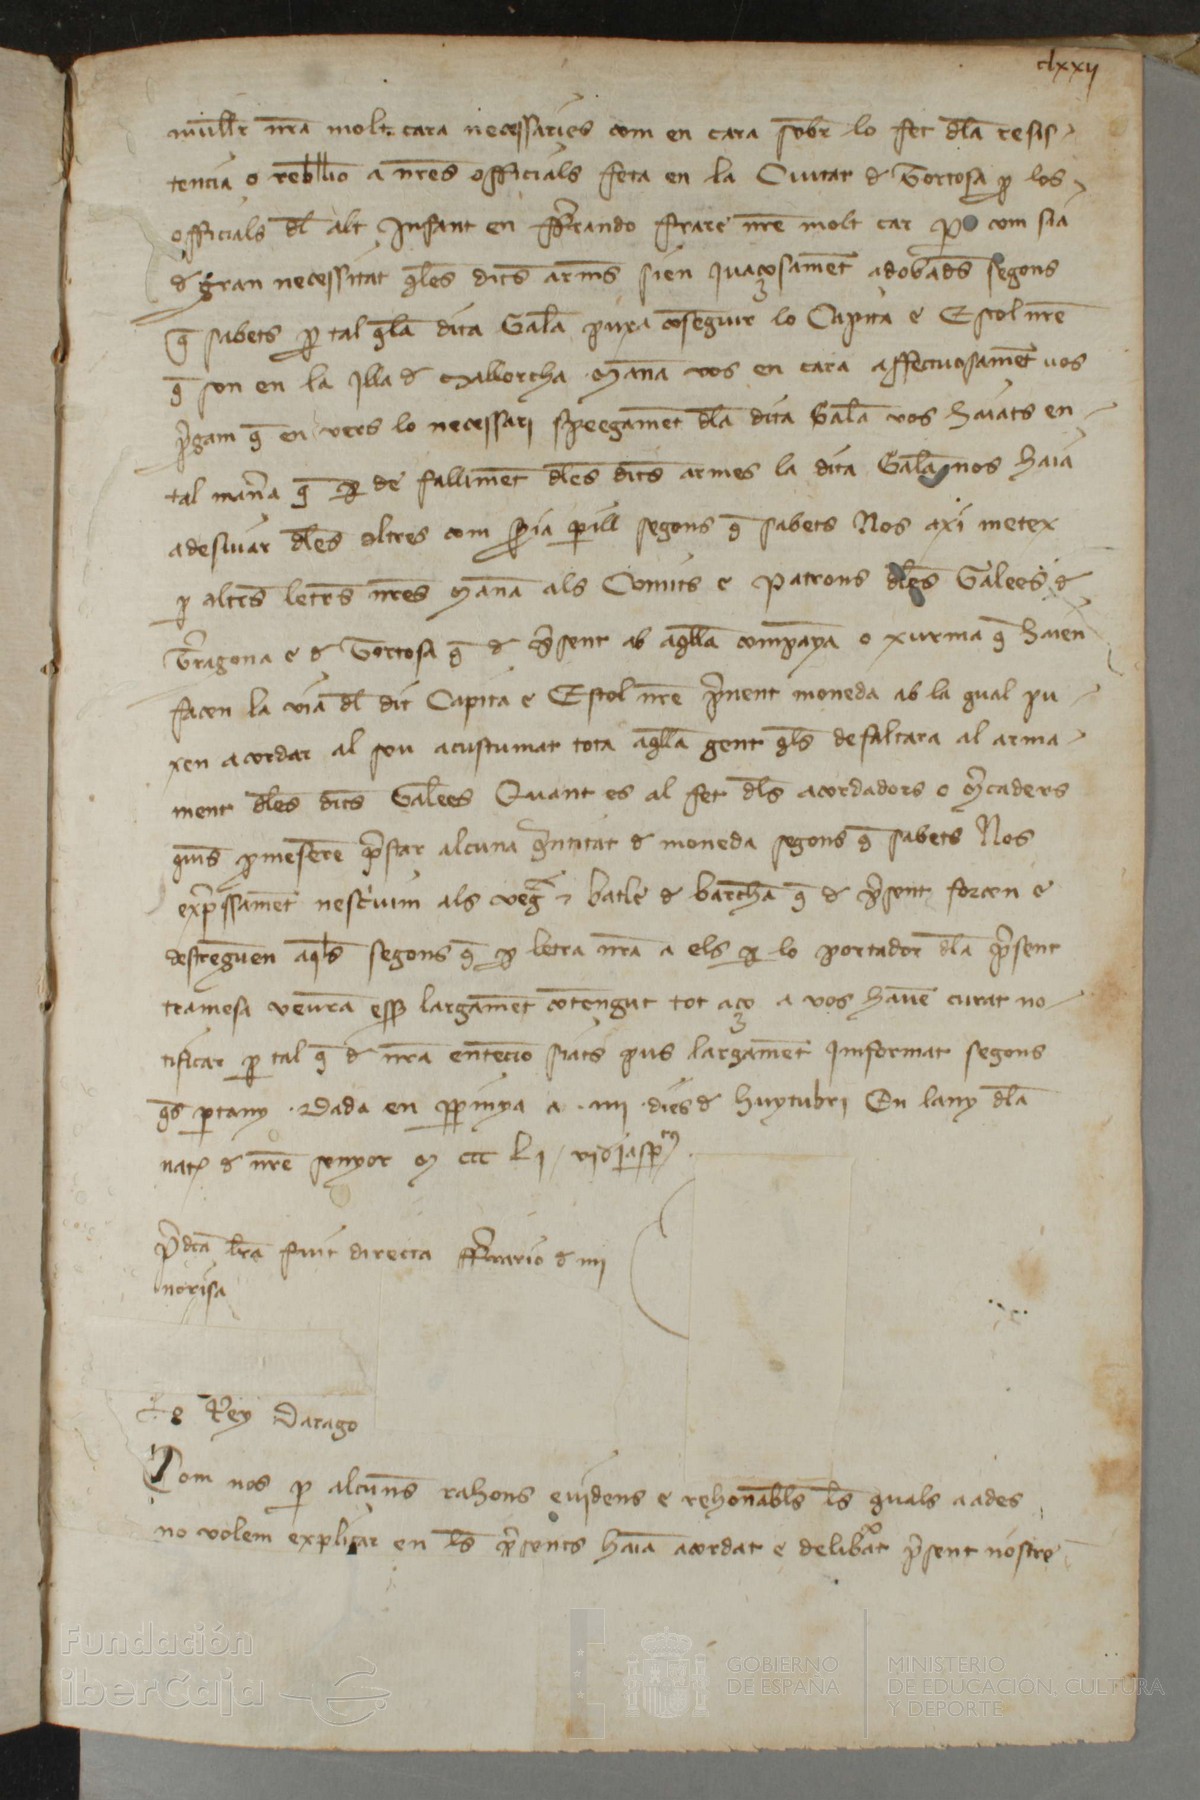 clxxij
mullr nra molt cara necessaries com en cara sobr lo fet dla resis
tencia o rebllio a nres officials feta en la Ciutat d Tortosa p los
officials dl alt Infant en ffrando frare nre molt car po com sia
d gran necessitat qles dits armes sien iuaçosament adobades segons
q sabets p tal qla dita Galea puxa conseguir lo Capita e Estol nre
q son en la Illa d Mallorcha Manam vos en cara affectuosament vos
pgam q en vers lo necessari speegament dla dita Galea vos haiats en
tal mana q p de falliment dles dits armes la dita Galea nos haia
adesiuar dles altres com sia perill segons q sabets Nos axi metex
p altres letres nres Manam als Comits e Patrons dles Galees d
Tragona e d Tortosa q d psent ab aqlla companya o xurma q haien
facen la via dl dit Capita e Estol nre prnent moneda ab la qual pu
xen acordar al sou acustumat tota aqlla gent qls defaltara al arma
ment dles dits Galees Quant es al fet dls acordadors o Mcaders
quis pmeseren prstar alcuna quntitat d moneda segons q sabets Nos
expressament nescriuim als veg e batle d barchna q d psent forcen e
destreguen aqls segons q p letra nra a els p lo portador dla psent
tramesa veuran esser largament contengut tot aço a vos hauem curat no
tificar p tal q d nra entencio siats pus largament informat segons
qs ptany Dada en ppinya a iiii dies d huytubri En lany dla
nat d nre senyor M ccc Li vidit jasptus
pdca lra fuit directa ffrrario d mi
norisa
Lo Rey Darago
Com nos p alcunes rahons euidens e rehonabls ls quals aades
no volem explicar en ls presents haiam acordat e deliberat psent nostre
Fundación
iberCaja
GOBIERNO
DE ESPAÑA
MINISTERIO
DE EDUCACIÓN, CULTURA
Y DEPORTE